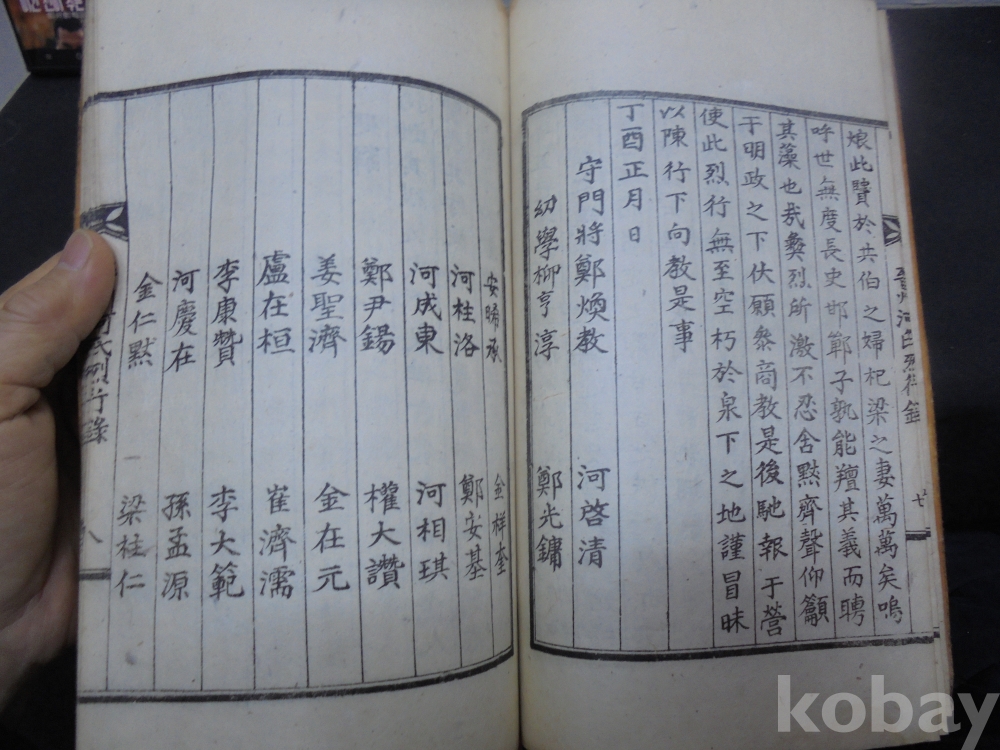 娘此賢於共伯之婦杞梁之妻萬萬矣嗚
呼世無度長史邯鄲子孰能擅其義而聘
其藻也哉彝烈所激不忍舍黙齊聲仰籲
于明政之下伏願叅商教是後馳報于營
使此烈行無至空朽於泉下之地謹冒昧
以陳行下向教是事
丁酉正月日
守門將鄭煥教 河啓清
幼學柳亨淳 鄭光鏞
安晞承 金祥奎
河柱洛 鄭安基
河成東 河相琪
鄭尹錫 權大讚
姜聖濟 金在元
盧在桓 崔濟濡
李康贊 李大範
河慶在 孫孟源
金仁黙 梁柱仁
氏烈行錄
八
kobay